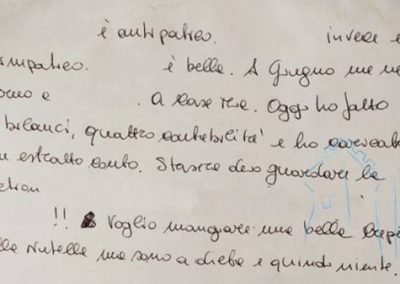 è antipatico. invece è
simpatico. è bella. A Giugno me ne
e . A casa mia. Oggi ho fatto
bilanci, quattro contabilità e ho
estratto conto. Stasera devo guardare la
!! Voglio mangiare una bella
Nutella ma sono a dieta e quindi niente.